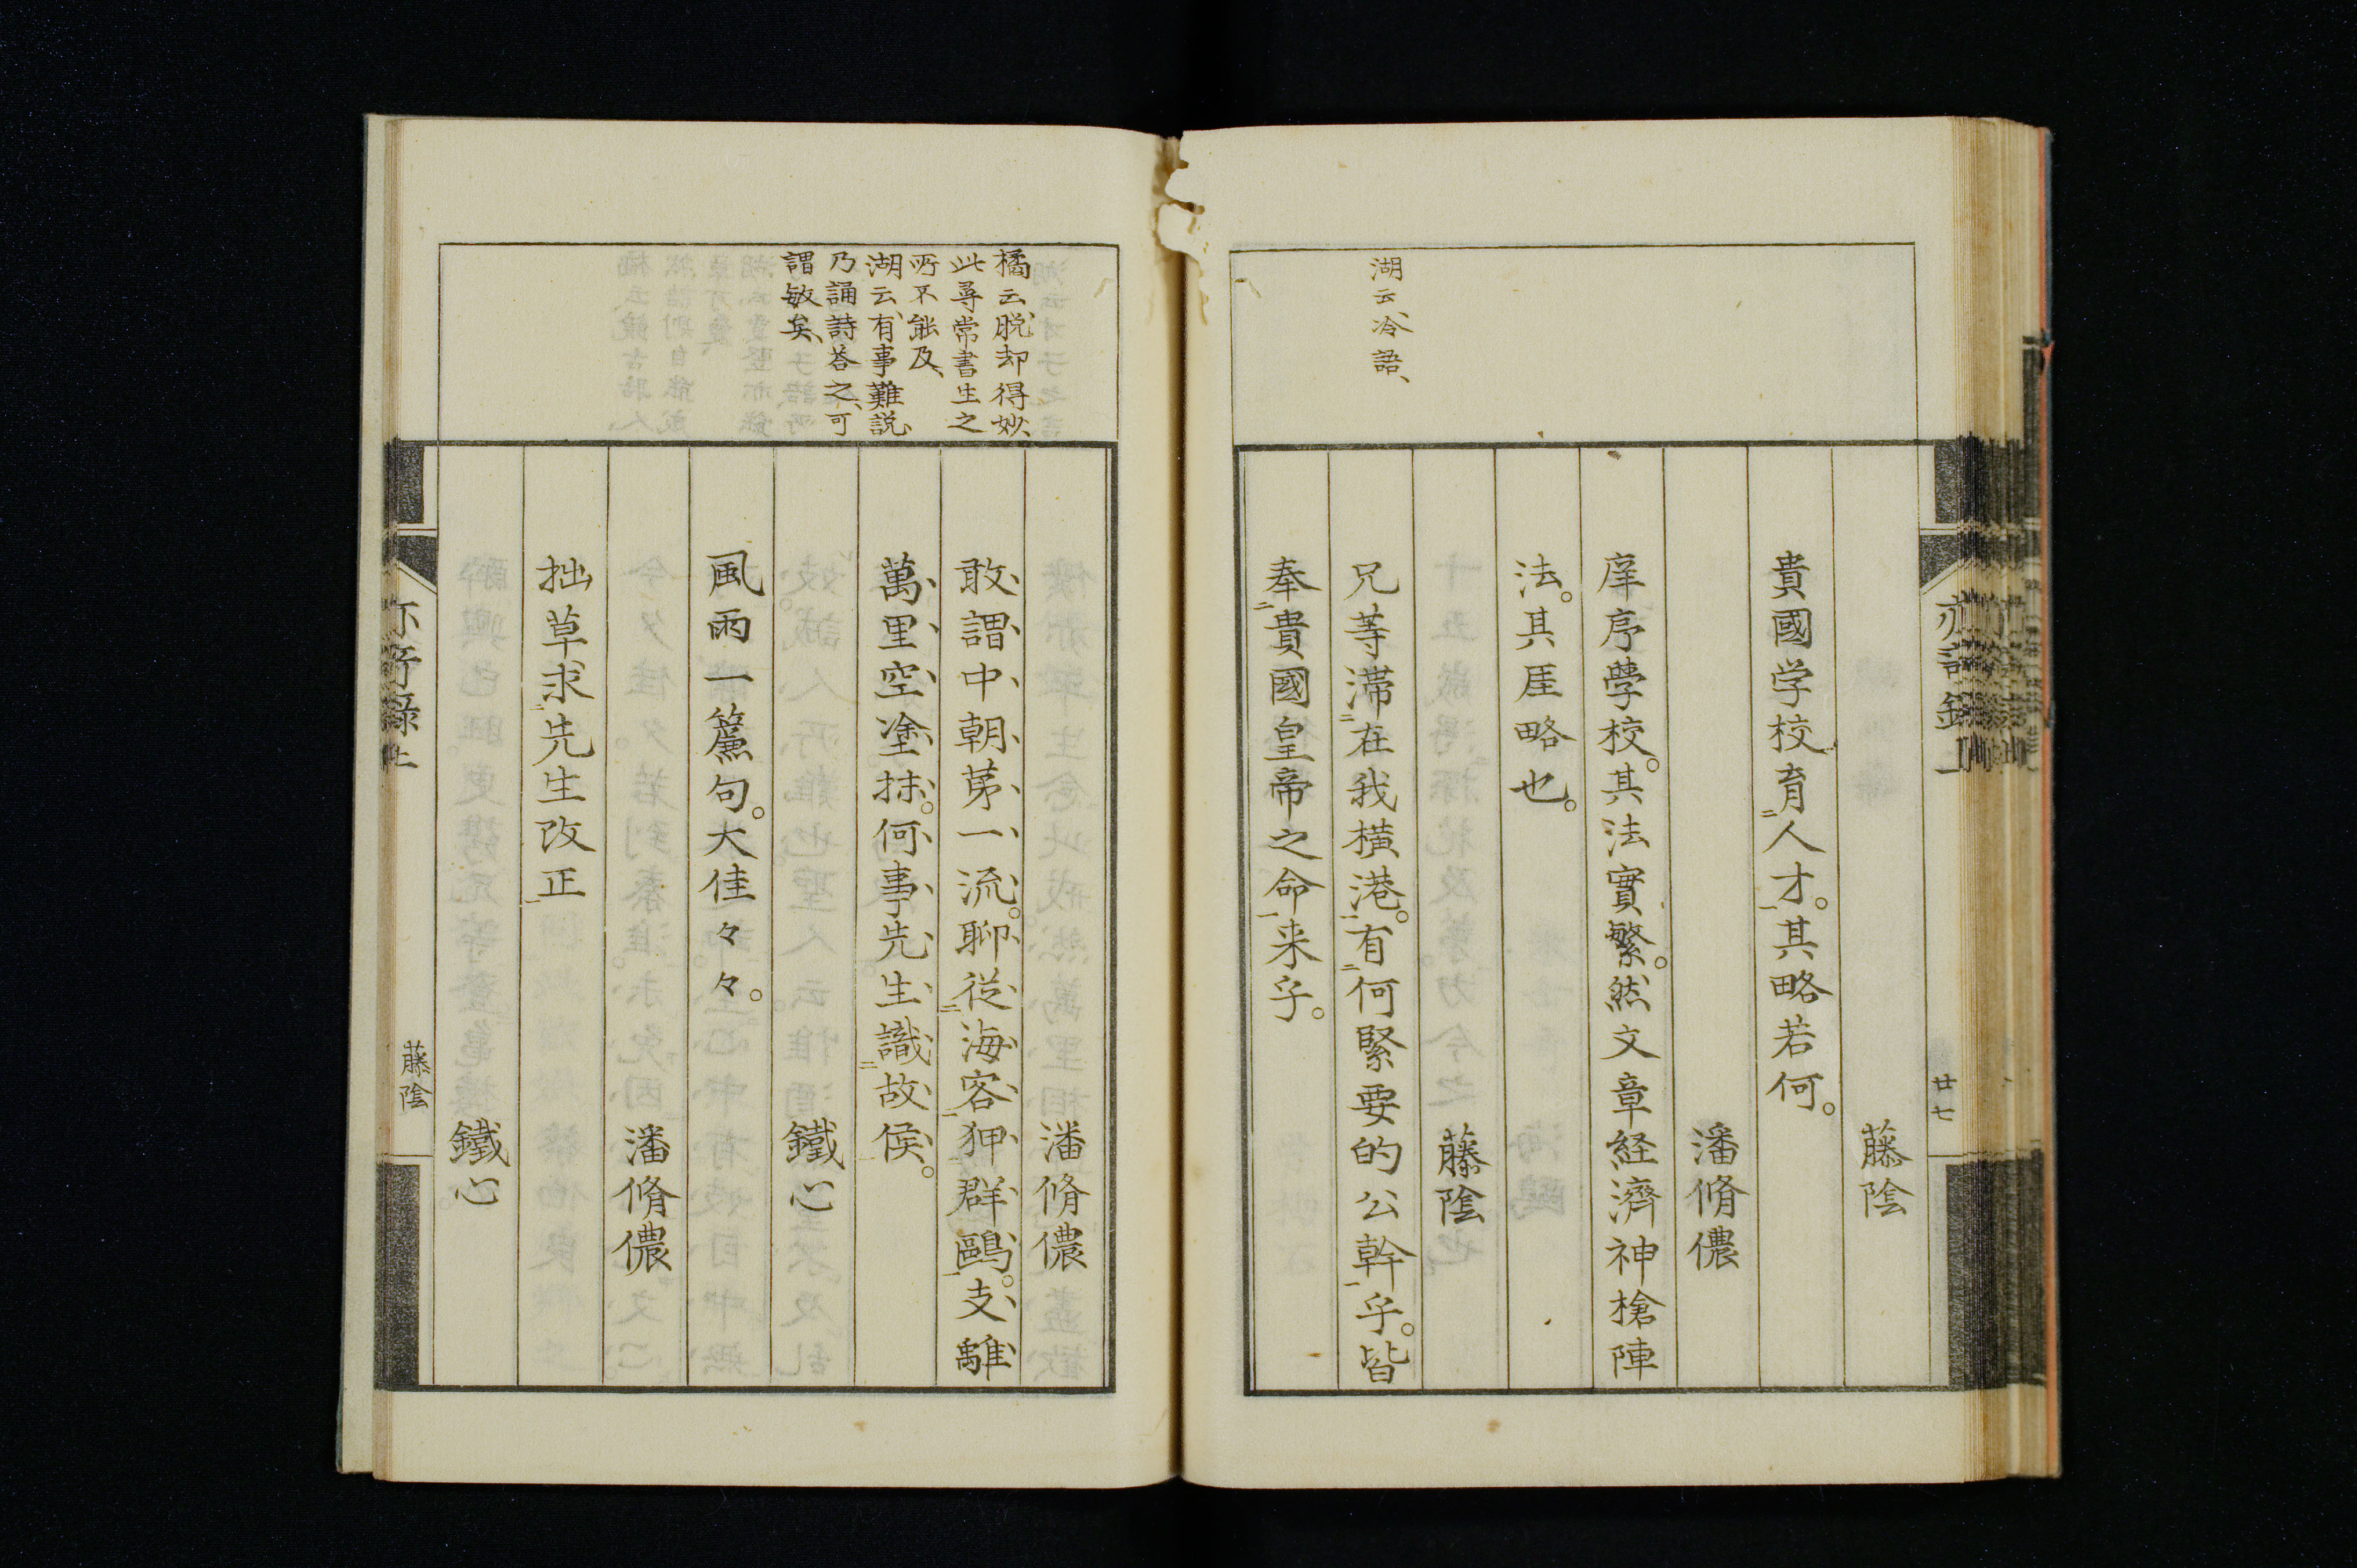 湖云、冷語、
藤陰
貴國学校育人才。其略若何。
潘脩儂
庠序學校。其法實繁。然文章経濟神槍陣
法。其厓略也。
藤陰
兄等滯在我横港。有何緊要的公幹乎。皆
奉貴國皇帝之命来乎。
廿七
橘云、脱却得妙、
此尋常書生之
所不能及、
湖云、有事難説、
乃誦詩答之、可
謂敏矣、
潘脩儂
敢謂中朝第一流。聊從海客狎群鷗。支離
萬里空塗抹。何事先生識故侯。
鐵心
風雨一簾句。大佳々々。
潘脩儂
拙草求先生改正
鐵心
藤陰